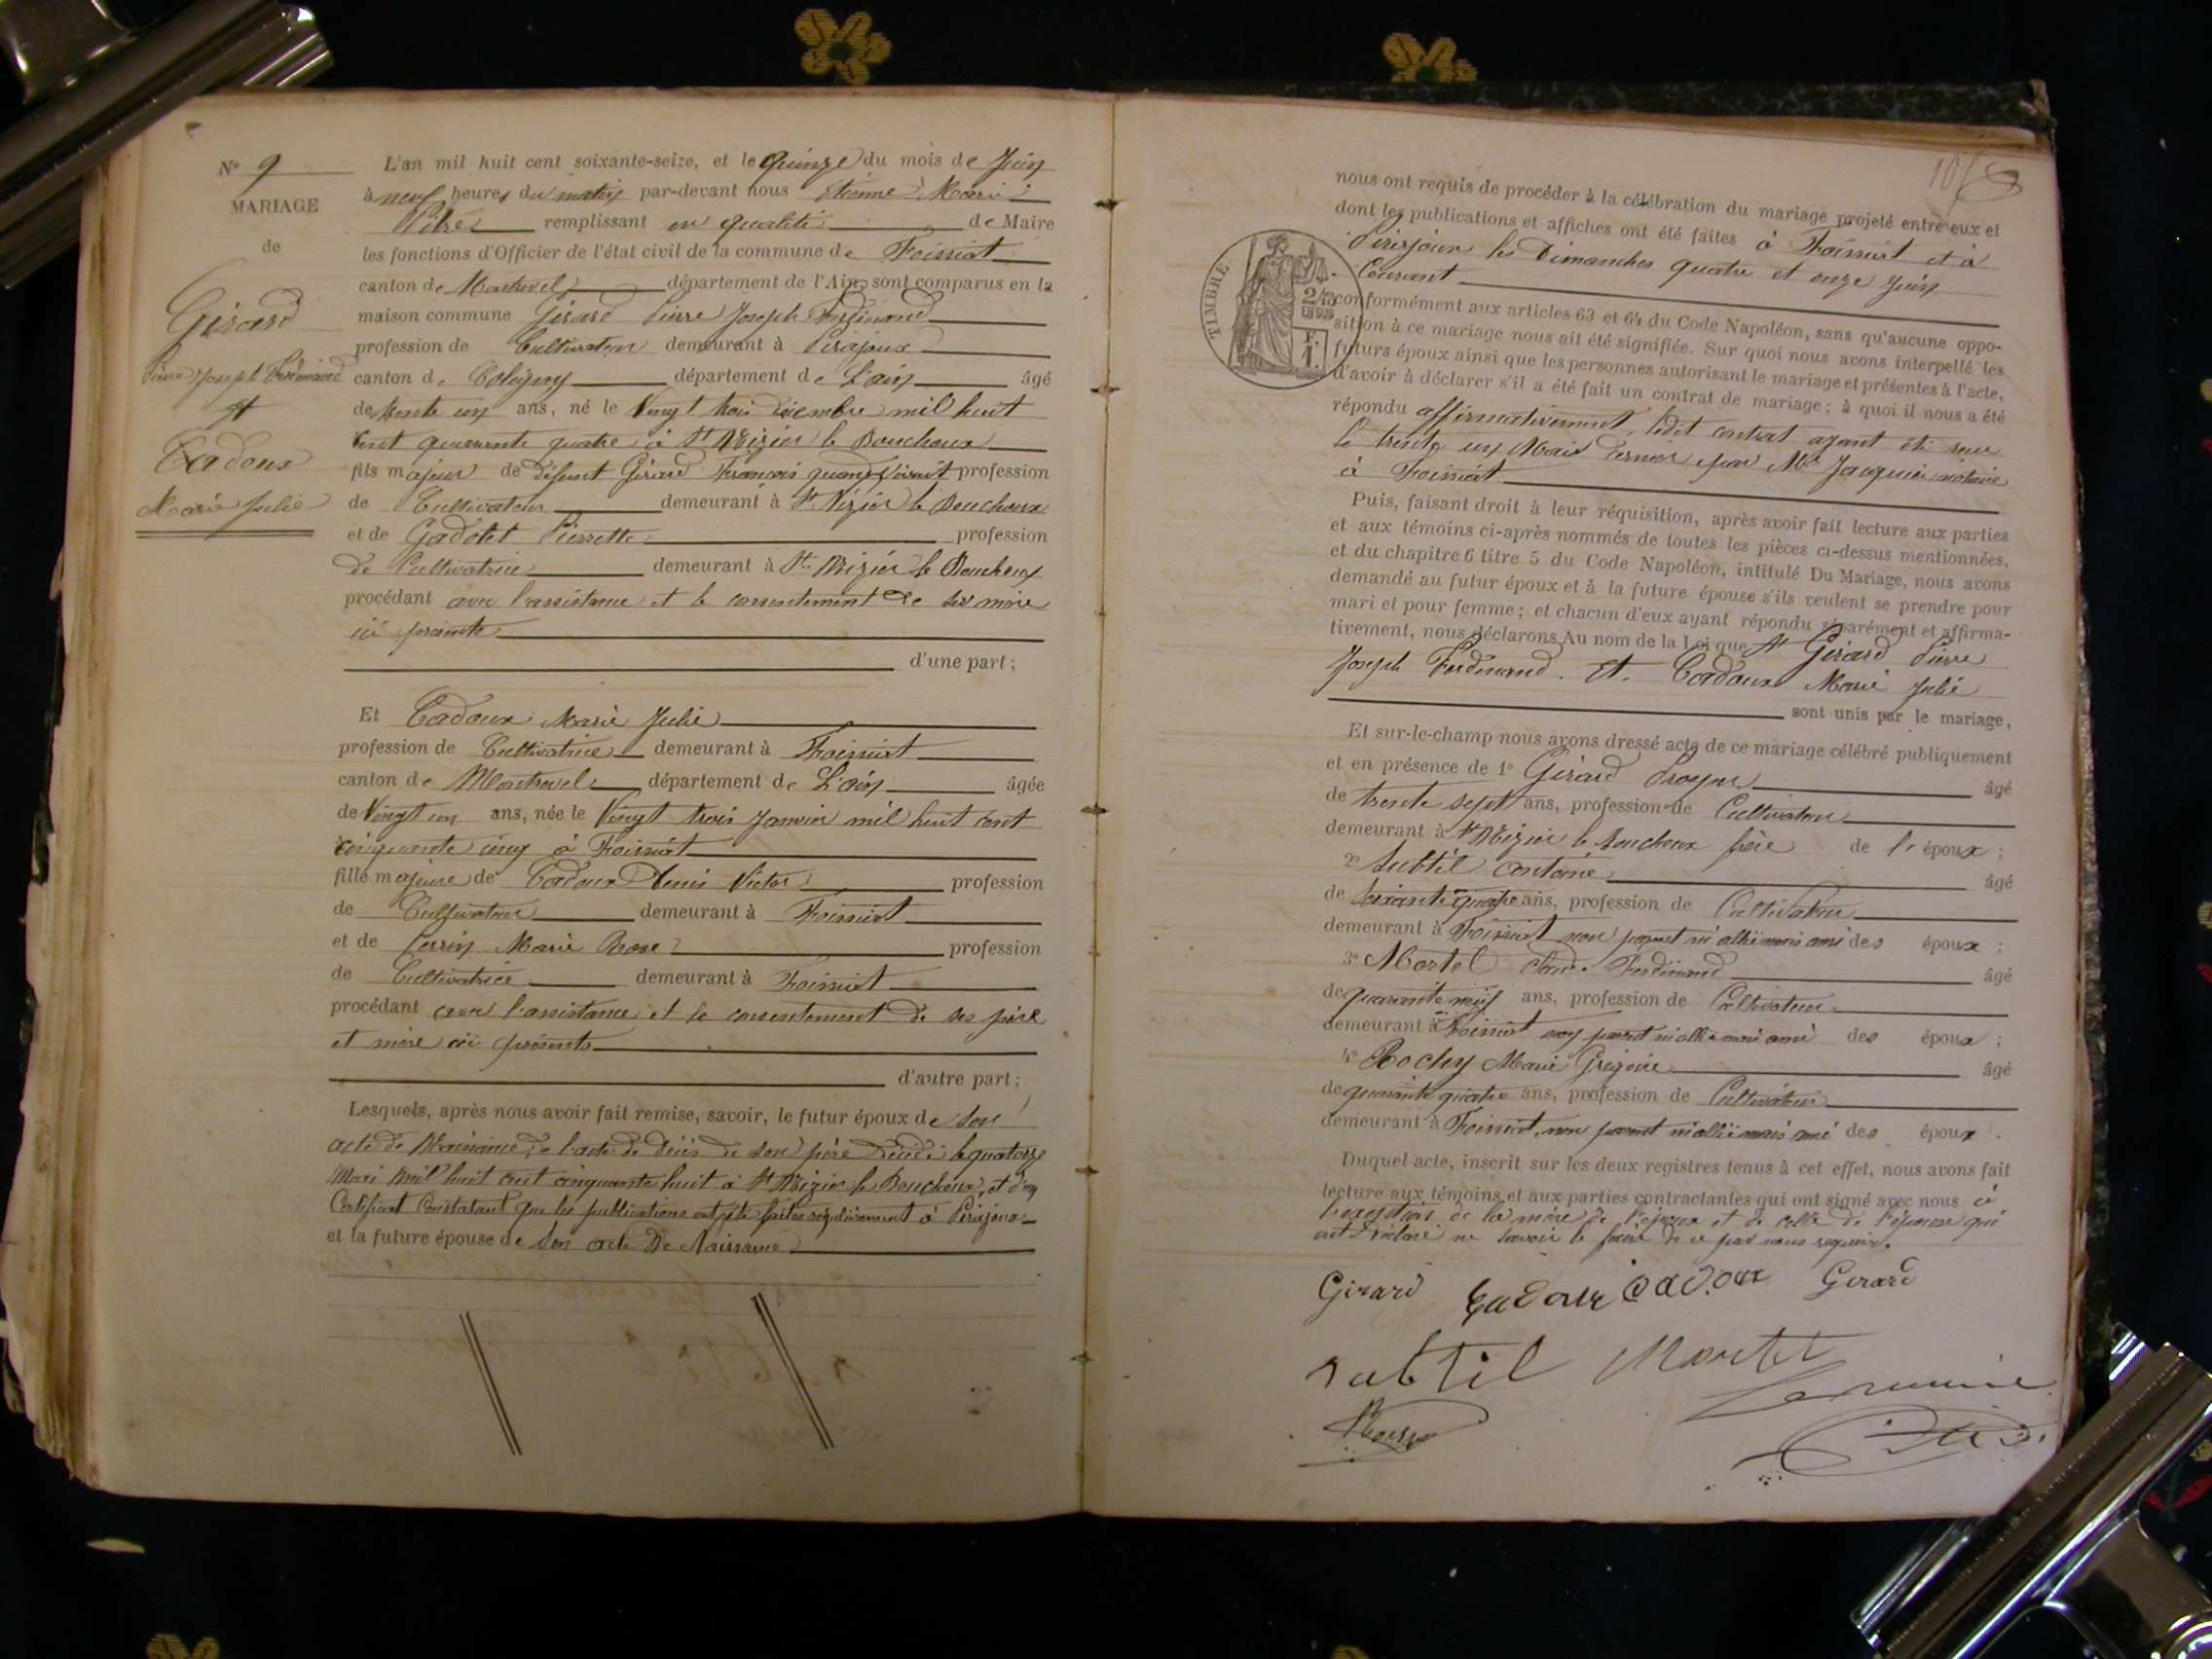 N° 9
MARIAGE
de
Girard
Pierre Joseph Ferdinand
et
Cadoux
Marie Julie
L'an mil huit cent soixante-seize, et le quinze du mois de Juin
à neuf heures du matin par-devant nous Etienne Marie
Pitre remplissant en qualité de Maire
les fonctions d'Officier de l'état civil de la commune de Foissiat
canton de Montrevel département de l'Ain, sont comparus en la
maison commune Girard Pierre Joseph Ferdinand
profession de Cultivateur demeurant à Pirajoux
canton de Coligny département de L'ain âgé
de trente un ans, né le Vingt trois décembre mil huit
cent quarante quatre à St Nizier le Bouchoux
fils majeur de défunt Girard François quand vivait profession
de Cultivateur demeurant à St Nizier le Bouchoux
et de Gadolet Pierrette profession
de Cultivatrice demeurant à St Nizier le Bouchoux
procédant avec l'assistance et le consentement de sa mère
ici présente
d'une part ;
Et Cadoux Marie Julie
profession de Cultivatrice demeurant à Foissiat
canton de Montrevel département de L'ain âgée
de Vingt un ans, née le Vingt trois Janvier mil huit cent
cinquante cinq à Foissiat
fille majeure de Cadoux Denis Victor profession
de Cultivateur demeurant à Foissiat
et de Perrin Marie Rose profession
de Cultivatrice demeurant à Foissiat
procédant avec l'assistance et le consentement de ses père
et mère ici présents
d'autre part ;
Lesquels, après nous avoir fait remise, savoir, le futur époux de son
acte de Naissance, de l'acte de décès de son père décédé le quatorze
Mars mil huit cent cinquante huit à St Nizier le Bouchoux, et d'un
Certificat Constatant que les publications ont été faites régulièrement à Pirajoux
et la future épouse de son acte de Naissance
nous ont requis de procéder à la célébration du mariage projeté entre eux et
dont les publications et affiches ont été faites à Foissiat et à
Pirajoux les Dimanches quatre et onze Juin
Courant
TIMBRE
2/10
EN SUS
F.
1.
conformément aux articles 63 et 64 du Code Napoléon, sans qu'aucune oppo-
sition à ce mariage nous ait été signifiée. Sur quoi nous avons interpellé les
futurs époux ainsi que les personnes autorisant le mariage et présentes à l'acte,
d'avoir à déclarer s'il a été fait un contrat de mariage ; à quoi il nous a été
répondu affirmativement, ledit contrat ayant été reçu
le trente un Mai dernier par Me Jacquier notaire
à Foissiat
Puis, faisant droit à leur réquisition, après avoir fait lecture aux parties
et aux témoins ci-après nommés de toutes les pièces ci-dessus mentionnées,
et du chapitre 6 titre 5 du Code Napoléon, intitulé Du Mariage, nous avons
demandé au futur époux et à la future épouse s'ils veulent se prendre pour
mari et pour femme ; et chacun d'eux ayant répondu séparément et affirma-
tivement, nous déclarons Au nom de la Loi que St Girard Pierre
Joseph Ferdinand. Et. Cadoux Marie Julie
sont unis par le mariage,
Et sur-le-champ nous avons dressé acte de ce mariage célébré publiquement
et en présence de 1° Girard Prosper âgé
de trente sept ans, profession de Cultivateur
demeurant à St Nizier le Bouchoux frère de l'époux ;
2° Subtil Antoine âgé
de soixante quatre ans, profession de Cultivateur
demeurant à Foissiat non parent ni allié mais ami des époux ;
3° Mortel Claude Ferdinand âgé
de quarante neuf ans, profession de Cultivateur
demeurant à Foissiat non parent ni allié mais ami des époux ;
4° Rochy Marie Grégoire âgé
de quarante quatre ans, profession de Cultivateur
demeurant à Foissiat, non parent ni allié mais ami des époux.
Duquel acte, inscrit sur les deux registres tenus à cet effet, nous avons fait
lecture aux témoins et aux parties contractantes qui ont signé avec nous à
l'exception de la mère de l'époux et de celle de l'épouse qui
ont déclaré ne savoir le faire de ce par nous requis.
Girard Cadoux Cadoux Girard
Subtil Mortel